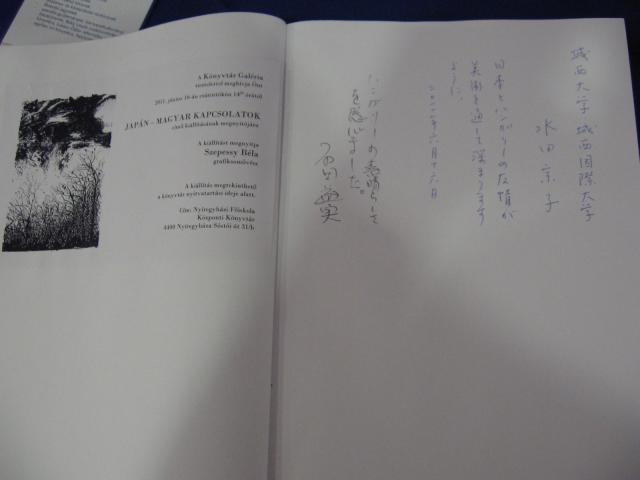 A Könyvtár Galéria
tisztelettel meghívja Önt
2011. június 16-án csütörtökön 14⁰⁰ órától
JAPÁN – MAGYAR KAPCSOLATOK
című kiállításának megnyitójára
A kiállítást megnyitja
Szepessy Béla
grafikusművész
A kiállítás megtekinthető
a könyvtár nyitvatartási ideje alatt.
Cím: Nyíregyházi Főiskola
Központi Könyvtár
4400 Nyíregyháza Sóstói út 31/b
城西大学 城西国際大学
水田宗子
日本とハンガリーの友情が
美術を通して深まります
ように。
二〇一一年六月十六日
ハンガリーの素晴らしさ
を感じました。